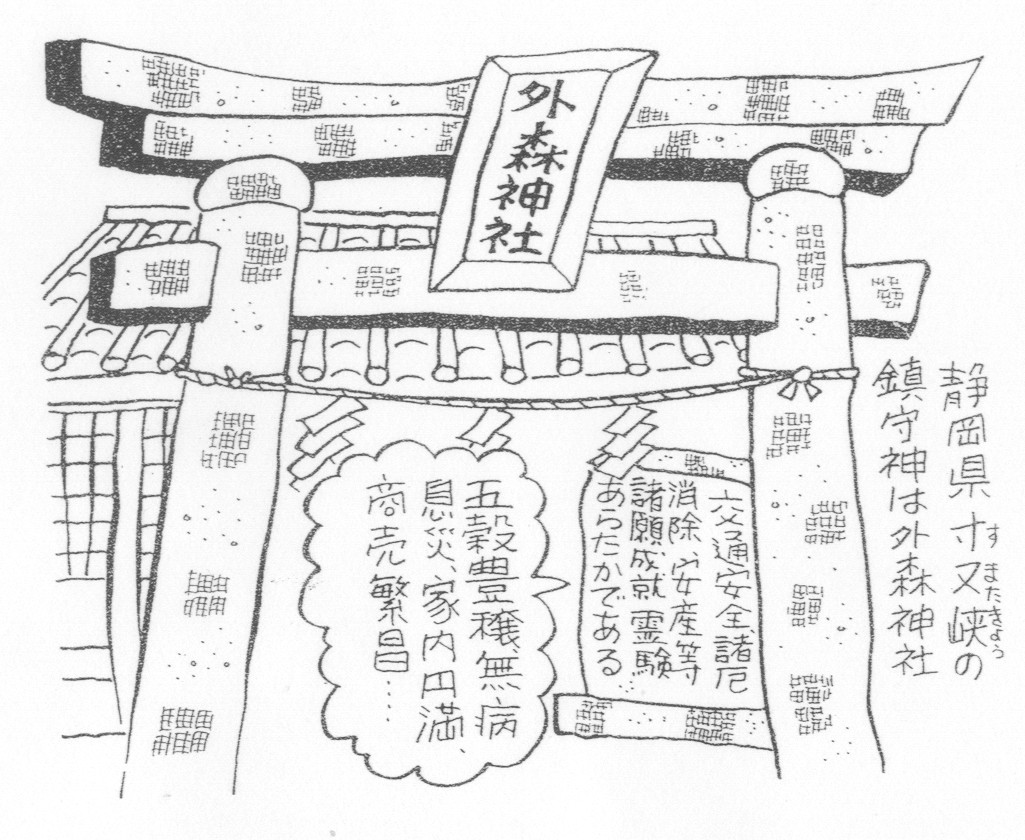 外森神社
静岡県寸又峡の
すまたきょう
鎮守神は外森神社
交通安全、諸厄
消除、安産等
諸願成就霊験
あらたかである
五穀豊穣、無病
息災、家内円満、
商売繁昌…